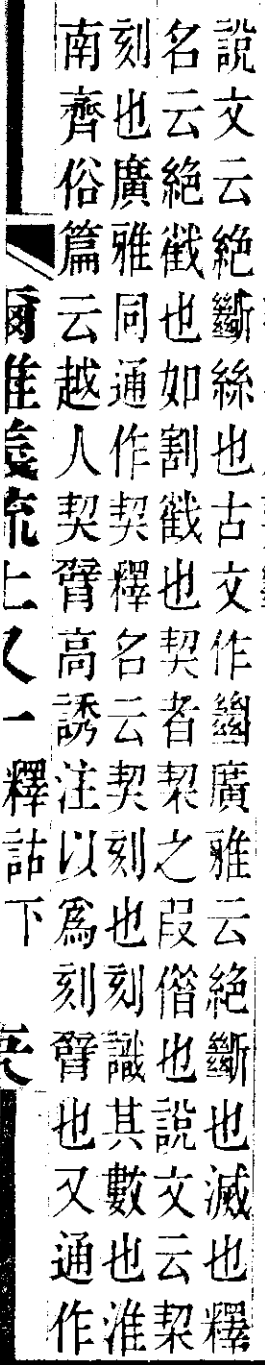 說文云絕斷絲也古文作𢇍廣雅云絕斷也滅也釋
名云絕截也如割截也契者栔之叚僭也說文云栔
刻也廣雅同通作契釋名云契刻也刻識其數也淮
南齊俗篇云越人契臂高誘注以爲刻臂也又通作
爾雅義疏上又一釋詁下